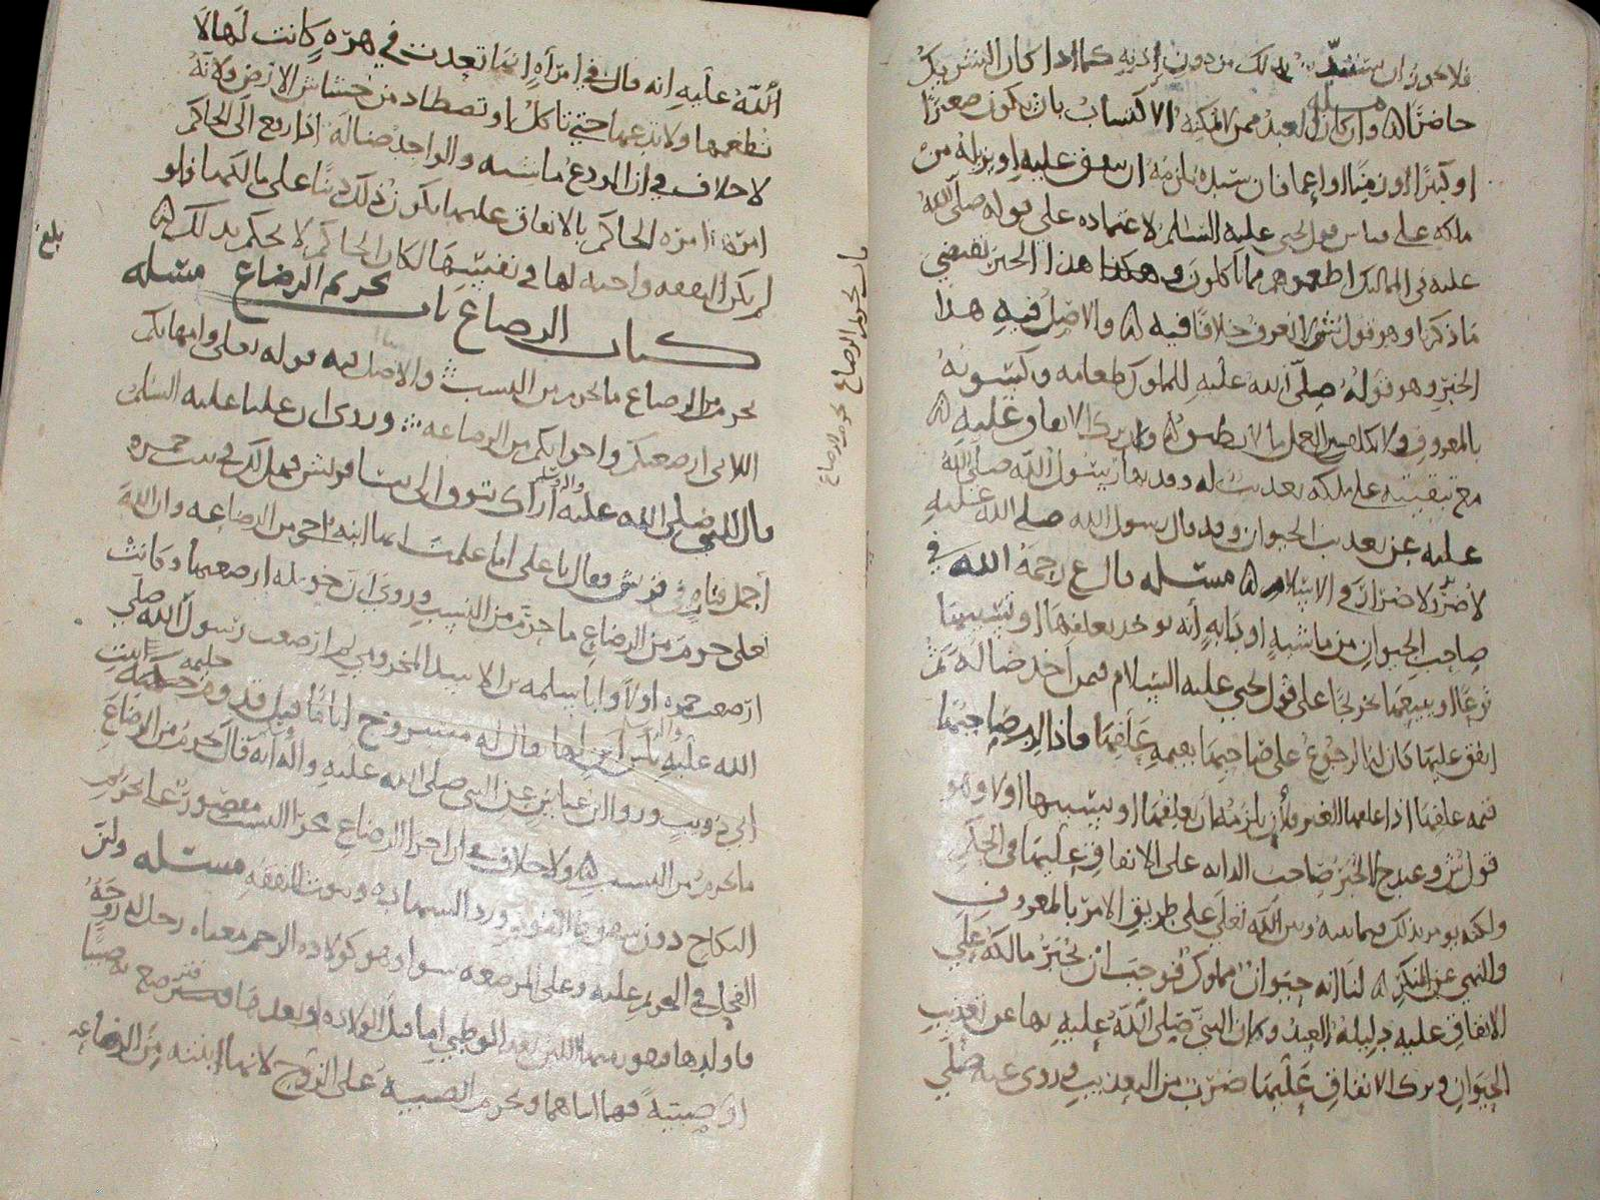 فلا يجوز ان يستبد بذلك من دون إذنه كما اذا كان الشريك
حاضرًا مسئله وان كان العبد ممن لا يمكنه الاكتساب بان يكون صغيرًا
او كبيرًا او زمنًا او اعمى فان سيده يلزمه ان ينفق عليه او يزيله من
ملكه على قياس قول يحيى عليه السلام لاعتماده على قوله صلى الله
عليه في المماليك اطعموهم مما تاكلون وهذا الخبر يقتضي
ما ذكرنا وهو قول ش ولا نعرف خلافًا فيه والاصل فيه هذا
الخبر وهو قوله صلى الله عليه للمملوك طعامه وكسوته
بالمعروف ولا يكلف من العمل ما لا يطيق وترك الانفاق عليه
مع تبقيته على ملكه تعذيب له وقد نهى رسول الله صلى الله
عليه عن تعذيب الحيوان وقد قال رسول الله صلى الله عليه
لا ضرر ولا ضرار في الاسلام مسئله قال ع رحمه الله في
صاحب الحيوان من ماشية او دابة أنه يوخذ بعلفها او تسييبها
او يبيعها تخريجًا على قول يحيى عليه السلام فمن أخذ ضالة ثم
انفق عليها كان له الرجوع على صاحبها بقيمة علفها فاذا لزم صاحبها
قيمة علفها اذا علفها الغير فلأن يلزمه ان يعلفها او يسيبها اولا وهو
قول ش وعند ح لا يجبر صاحب الدابة على الانفاق عليها في الحكم
ولكنه يومر بذلك فيما بينه وبين الله تعلى على طريق الامر بالمعروف
والنهي عن المنكر لنا انه حيوان مملوك فوجب ان يجبر مالكه على
الانفاق عليه دليله العبد وكان النبي صلى الله عليه نهى عن تعذيب
الحيوان وترك الانفاق عليها ضرب من التعذيب وروى عنه صلى
باب تحريم الرضاع
تحريم الرضاع
الله عليه انه قال في امرأة إنها تعذب في هرة كانت لها لا
تطعمها ولا تدعها حتى تاكل او تصطاد من خشاش الارض ولانه
لا خلاف في ان المودع ماشية والواجد ضالة اذا رفع الى الحاكم
امرها امره الحاكم بالانفاق عليها يكون ذلك دينًا على مالكها فلو
لم يكن النفقة واجبة لها في نفسها لكان الحاكم لا يحكم بذلك
بلغ
كتاب الرضاع باب تحريم الرضاع مسئله
يحرم من الرضاع ما يحرم من النسب والاصل فيه قوله تعلى وامهاتكم
اللاتي ارضعنكم واخواتكم من الرضاعة وروى ان عليا عليه السلم
قال للنبي صلى الله عليه واله وسلم أراك تتوق الى نسا قريش فهل لك في بنت حمزة
أجمل فتاة في قريش فقال يا علي اما علمت انها ابنة اخي من الرضاعة وان الله
تعلى حرم من الرضاع ما حرم من النسب وروى أن ثويبه ارضعتهما وكانت
ارضعت حمزه اولا وابا سلمه بن الاسد المخزومي ثم ارضعت رسول الله صلى
الله عليه بلبن ابن لها يقال له مسروح ايامًا قبل قدوم حليمة ابنت
ابي ذويب وروى ابن عباس عن النبي صلى الله عليه واله انه قال يحرم من الرضاع
ما يحرم من النسب ولا خلاف في ان اجرا الرضاع مجرى النسب مقصور على تحريم
النكاح دون سقوط القود ورد الشهادة وثبوت النفقة مسئله ولبن
الفحل في التحريم عليه وعلى المرضعة سوا وهو كولادة الرحم معناه رجل له زوجة
فاولدها فهو بينهما اللبن بعد الوطي اما قبل الولادة او بعدها فترضع به صبيًا
او صبية فهما ابناهما وتحرم الصبية على الزوج لانها ابنته من الرضاعة